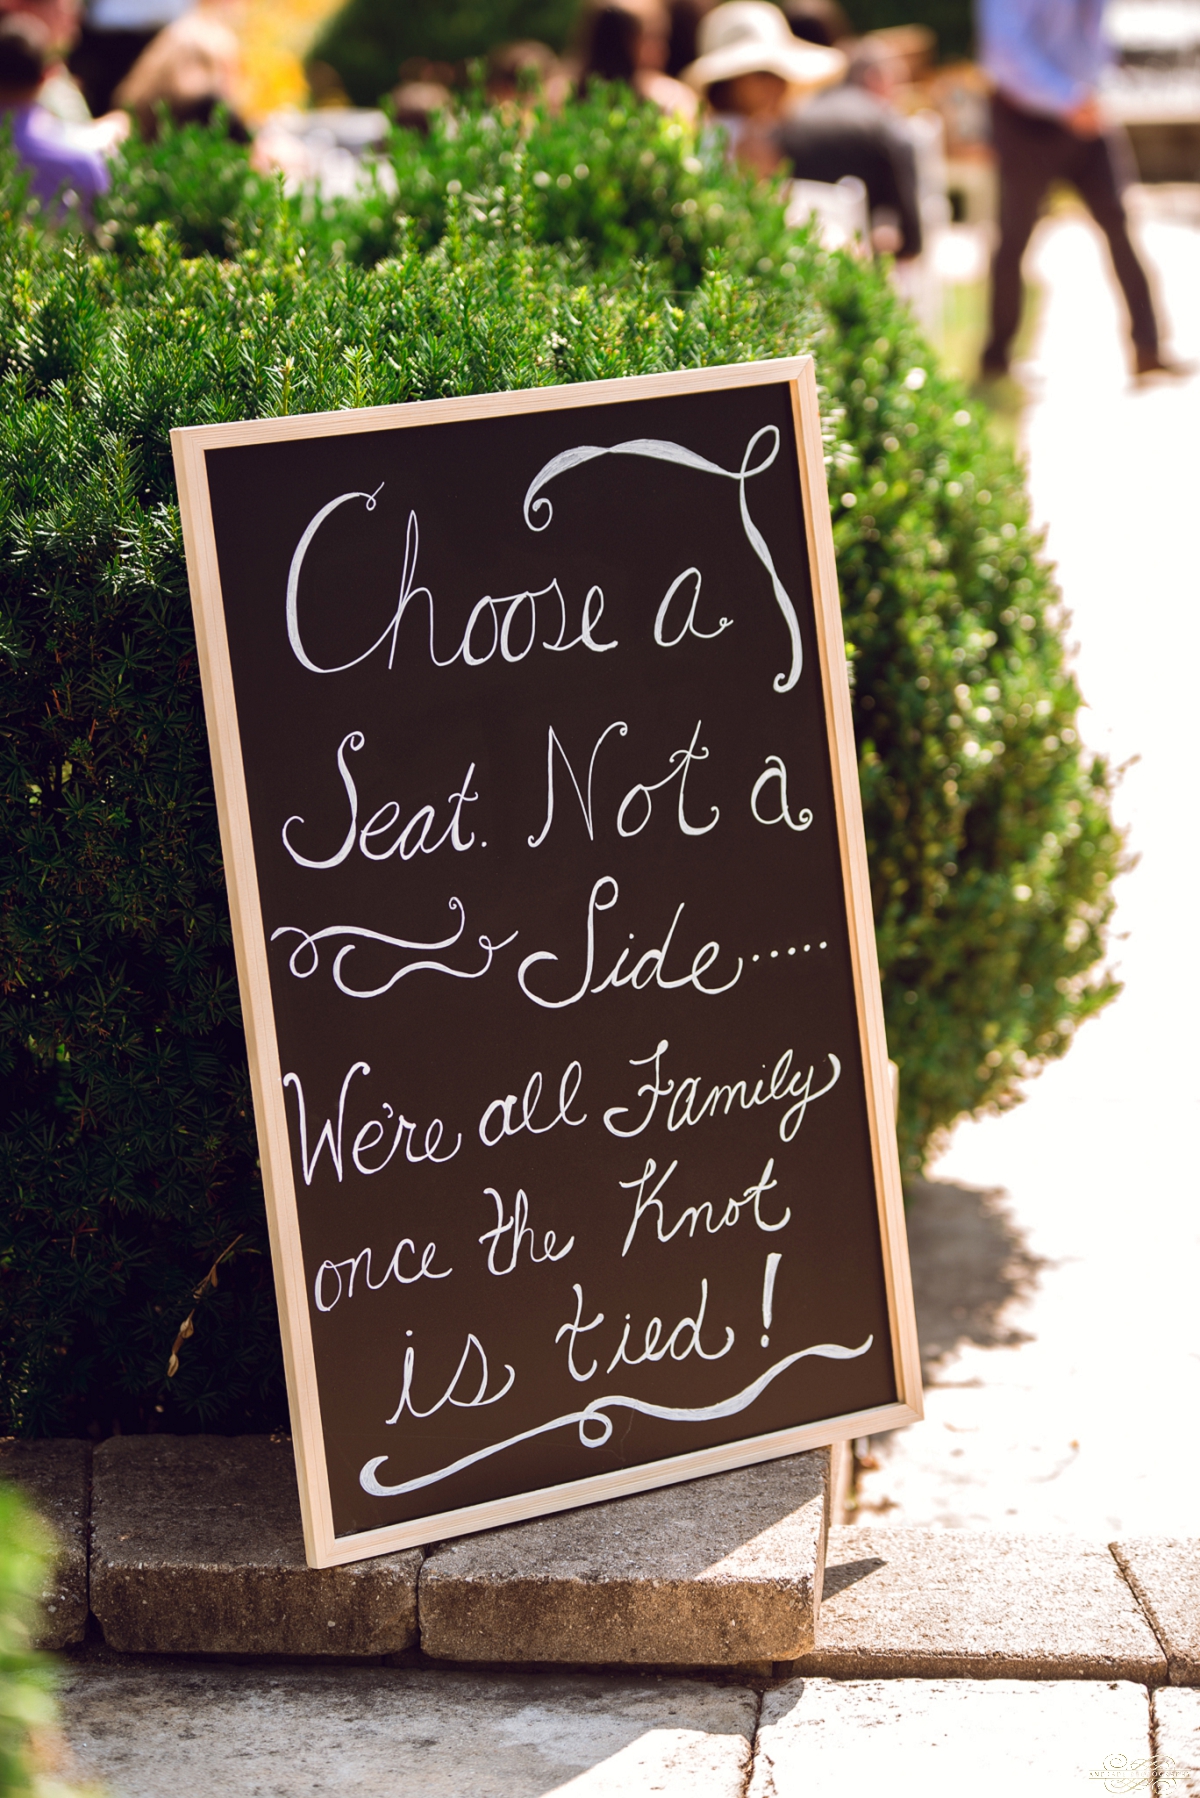 Choose a
Seat. Not a
Side.....
We're all Family
once the Knot
is tied!